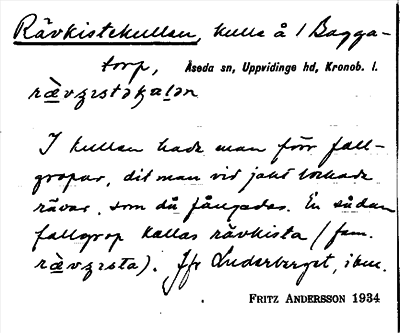 Rävkistekullen, kulle å 1 Bagga-
torp, Åseda sn, Uppvidinge hd, Kronob. l.
I kullen hade man förr fall-
gropar, dit man vid jakt lockade
rävar, som då fångades. En sådan
fallgrop kallas rävkista (fem.
). Jfr Luderberget, ibm.
FRITZ ANDERSSON 1934